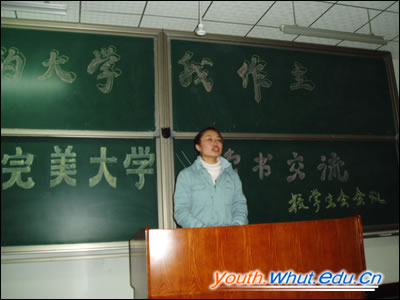 的大学 我作主
完美大学 书交流
校学生会会议
youth.Whut.edu.Cn